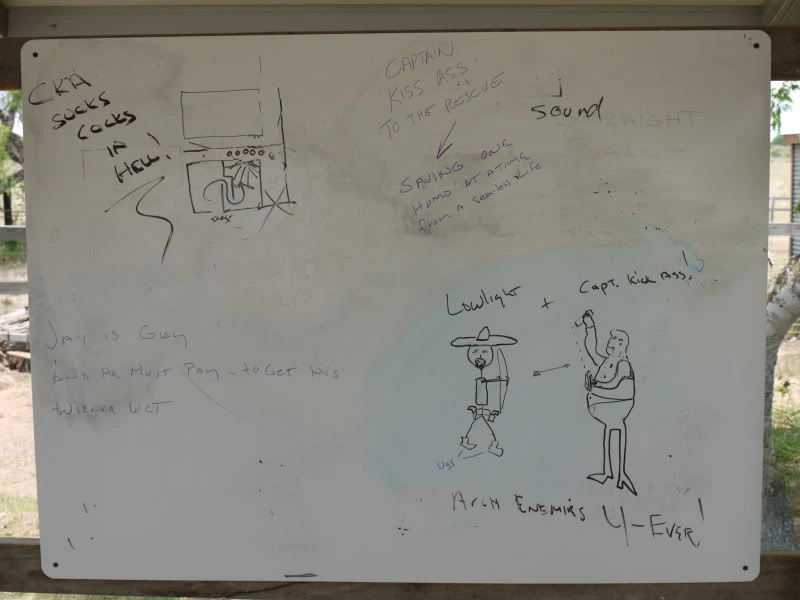 CKA
SUCKS
COCKS
IN
HELL!
CAPTAIN
KISS ASS
TO THE RESCUE
SAVING ONE
HOMO AT A TIME
from a sexless life
sound
STRAIGHT
JAY IS GAY
AND HE MUST PAY - to Get his
wienke wet
Lowlight + Capt. Kick Ass!
UGS
Arch Enemies 4-Ever!